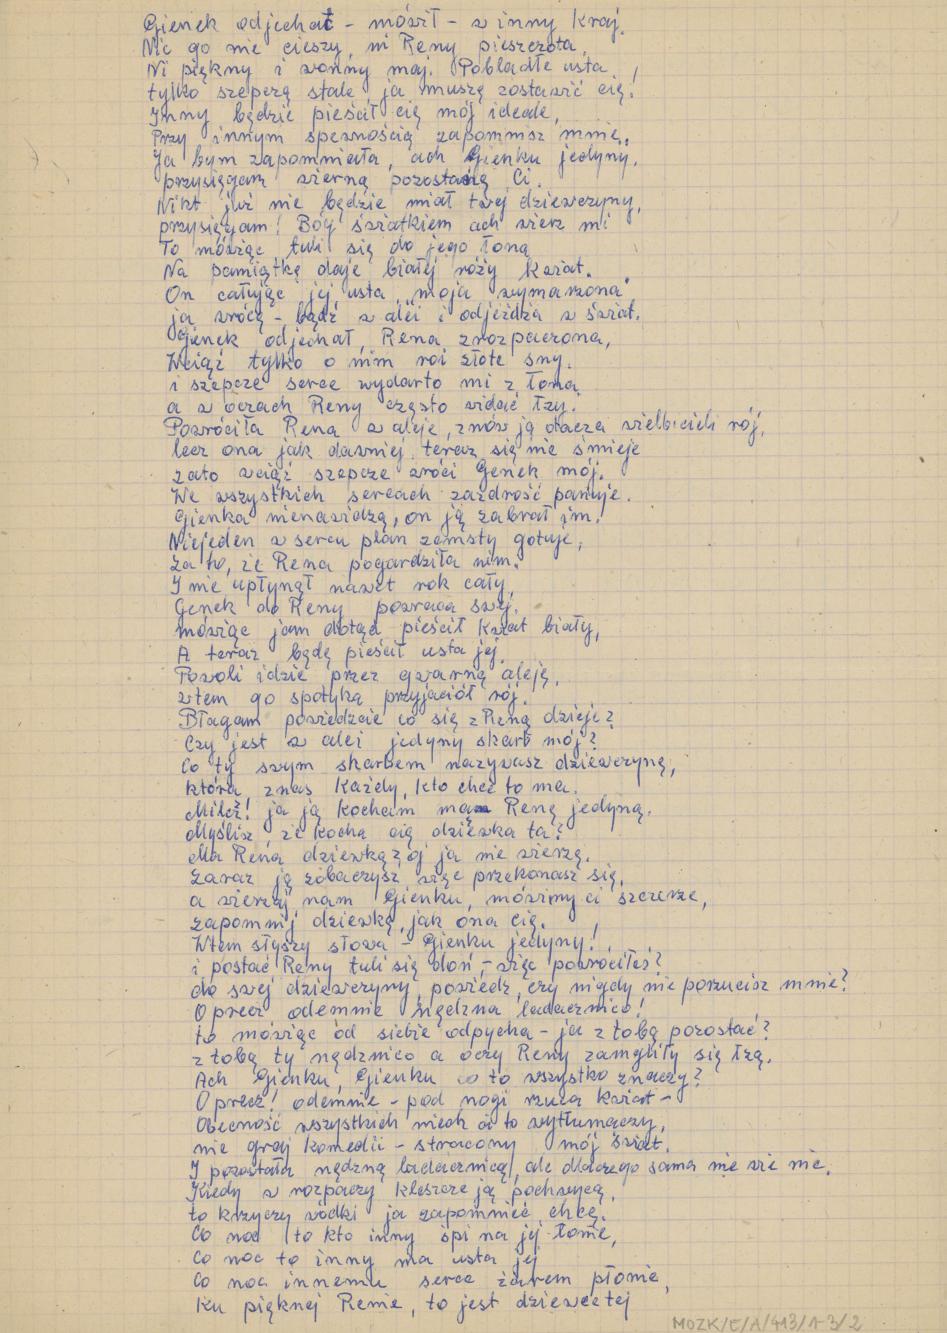 Gienek odjechał - mówił - w inny Kraj.
Nic go nie cieszy, ni Reny pieszczota,
Ni piękny i wonny maj. Pobladłe usta
tylko szepczą stale ja muszę zostawić cię!
Inny będzie pieścił cię mój ideale,
Przy innym z pewnością zapomnisz mnie.
Ja bym zapomniała, ach Gienku jedyny,
przysięgam wierną pozostanę Ci.
Nikt już nie będzie miał twej dziewczyny,
przysięgam! Bóg świadkiem ach wierz mi
To mówiąc tuli się do jego łona
Na pamiątkę daje białej róży kwiat.
On całując jej usta „moja wymarzona"
ja wrócę - bądź w alei i odjeżdża w świat.
Gienek odjechał, Rena zrozpaczona,
Wciąż tylko o nim roi złote sny.
i szepcze serce wydarto mi z łona
a w oczach Reny często widać łzy.
Powróciła Rena w aleje, znów ją otacza wielbicieli rój,
lecz ona jak dawniej teraz się nie śmieje
zato wciąż szepcze wróci Genek mój.
We wszystkich sercach zazdrość panuje.
Gienka nienawidzą, on ją zabrał im!
Niejeden w sercu plan zemsty gotuje,
za to, że Rena pogardziła nim.
I nie upłynął nawet rok cały,
Genek do Reny powraca swej,
mówiąc jam dotąd pieścił kwiat biały,
A teraz będę pieścił usta jej.
Powoli idzie przez gwarną aleją,
wtem go spotyka przyjaciół rój.
Błagam powiedzcie co się z Reną dzieje?
Czy jest w alei jedyny skarb mój?
Co ty swym skarbem nazywasz dziewczyną,
którą znas Każdy, kto chce to ma.
Milcz! ja ją kocham mą Renę jedyną.
Myślisz, że kocha cię dziewka ta?
Ma Rena dziewką? oj ja nie wierzę.
Zaraz ją zobaczysz więc przekonasz się,
a wierzaj nam Gienku, mówimy ci szczerze,
zapomnij dziewkę, jak ona cię.
Wtem słyszy słowa - Gienku jedyny!
i postać Reny tuli się doń - więc powróciłeś?
do swej dziewczyny, powiedz, czy nigdy nie porzucisz mnie?
O precz odemnie nędzna ladacznico!
to mówiąc od siebie odpycha - ja z tobą pozostać?
z tobą ty nędznico a oczy Reny zamgliły się łzą.
Ach Gienku, Gienku co to wszystko znaczy?
O precz! odemnie - pod nogi rzuca kwiat -
Obecność wszystkich niech ci to wytłumaczy,
nie graj komedii - stracony mój świat.
I pozostała nędzną ladacznicą, ale dlaczego sama nie wie nie.
Kiedy w rozpaczy kleszcze ją pochwycą,
to krzyczy wódki ja zapomnieć chcę.
Co noc to kto inny śpi na jej łonie,
Co noc to inny ma usta jej
Co noc innemu serce żarem płonie,
Ku pięknej Renie, to jest dziewce tej
MOZK/E/A/413/1-3/2